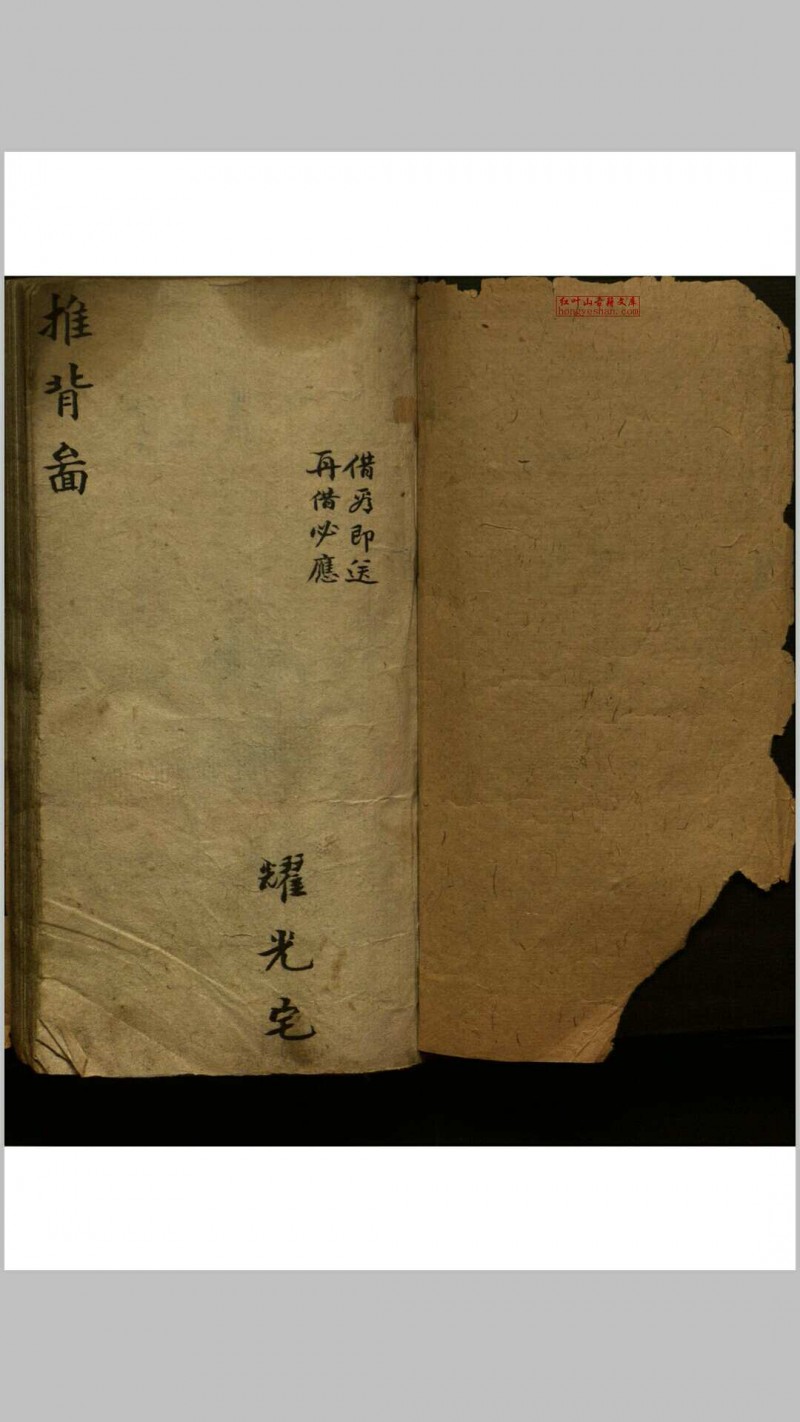 红叶山古籍文库
hongyeshan.com
推背啚
借看即送
再借必應
耀光宅